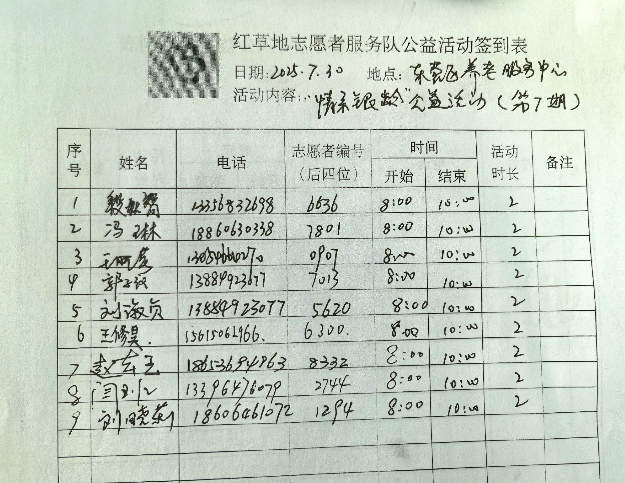 红草地志愿者服务队公益活动签到表
日期:2025.7.30 地点: 东营区养老服务中心
活动内容: "情系银龄"公益活动(第7期)
序号 姓名 电话 志愿者编号(后四位) 时间 开始 结束 活动时长 备注
1 13356832698 6636 8:00 10:00 2
2 冯玉林 18860630338 7801 8:00 10:00 2
3 0907 8:00 10:00 2
4 13884923677 7013 8:00 10:00 2
5 刘海贞 13884923077 5620 8:00 10:00 2
6 王修昊. 15615062966. 6300. 8:00 10:00 2
7 赵东玉 18653694963 8332 8:00 10:00 2
8 13396476079 2744 8:00 10:00 2
9 刘晓莉 18606461072 1294 8:00 10:00 2